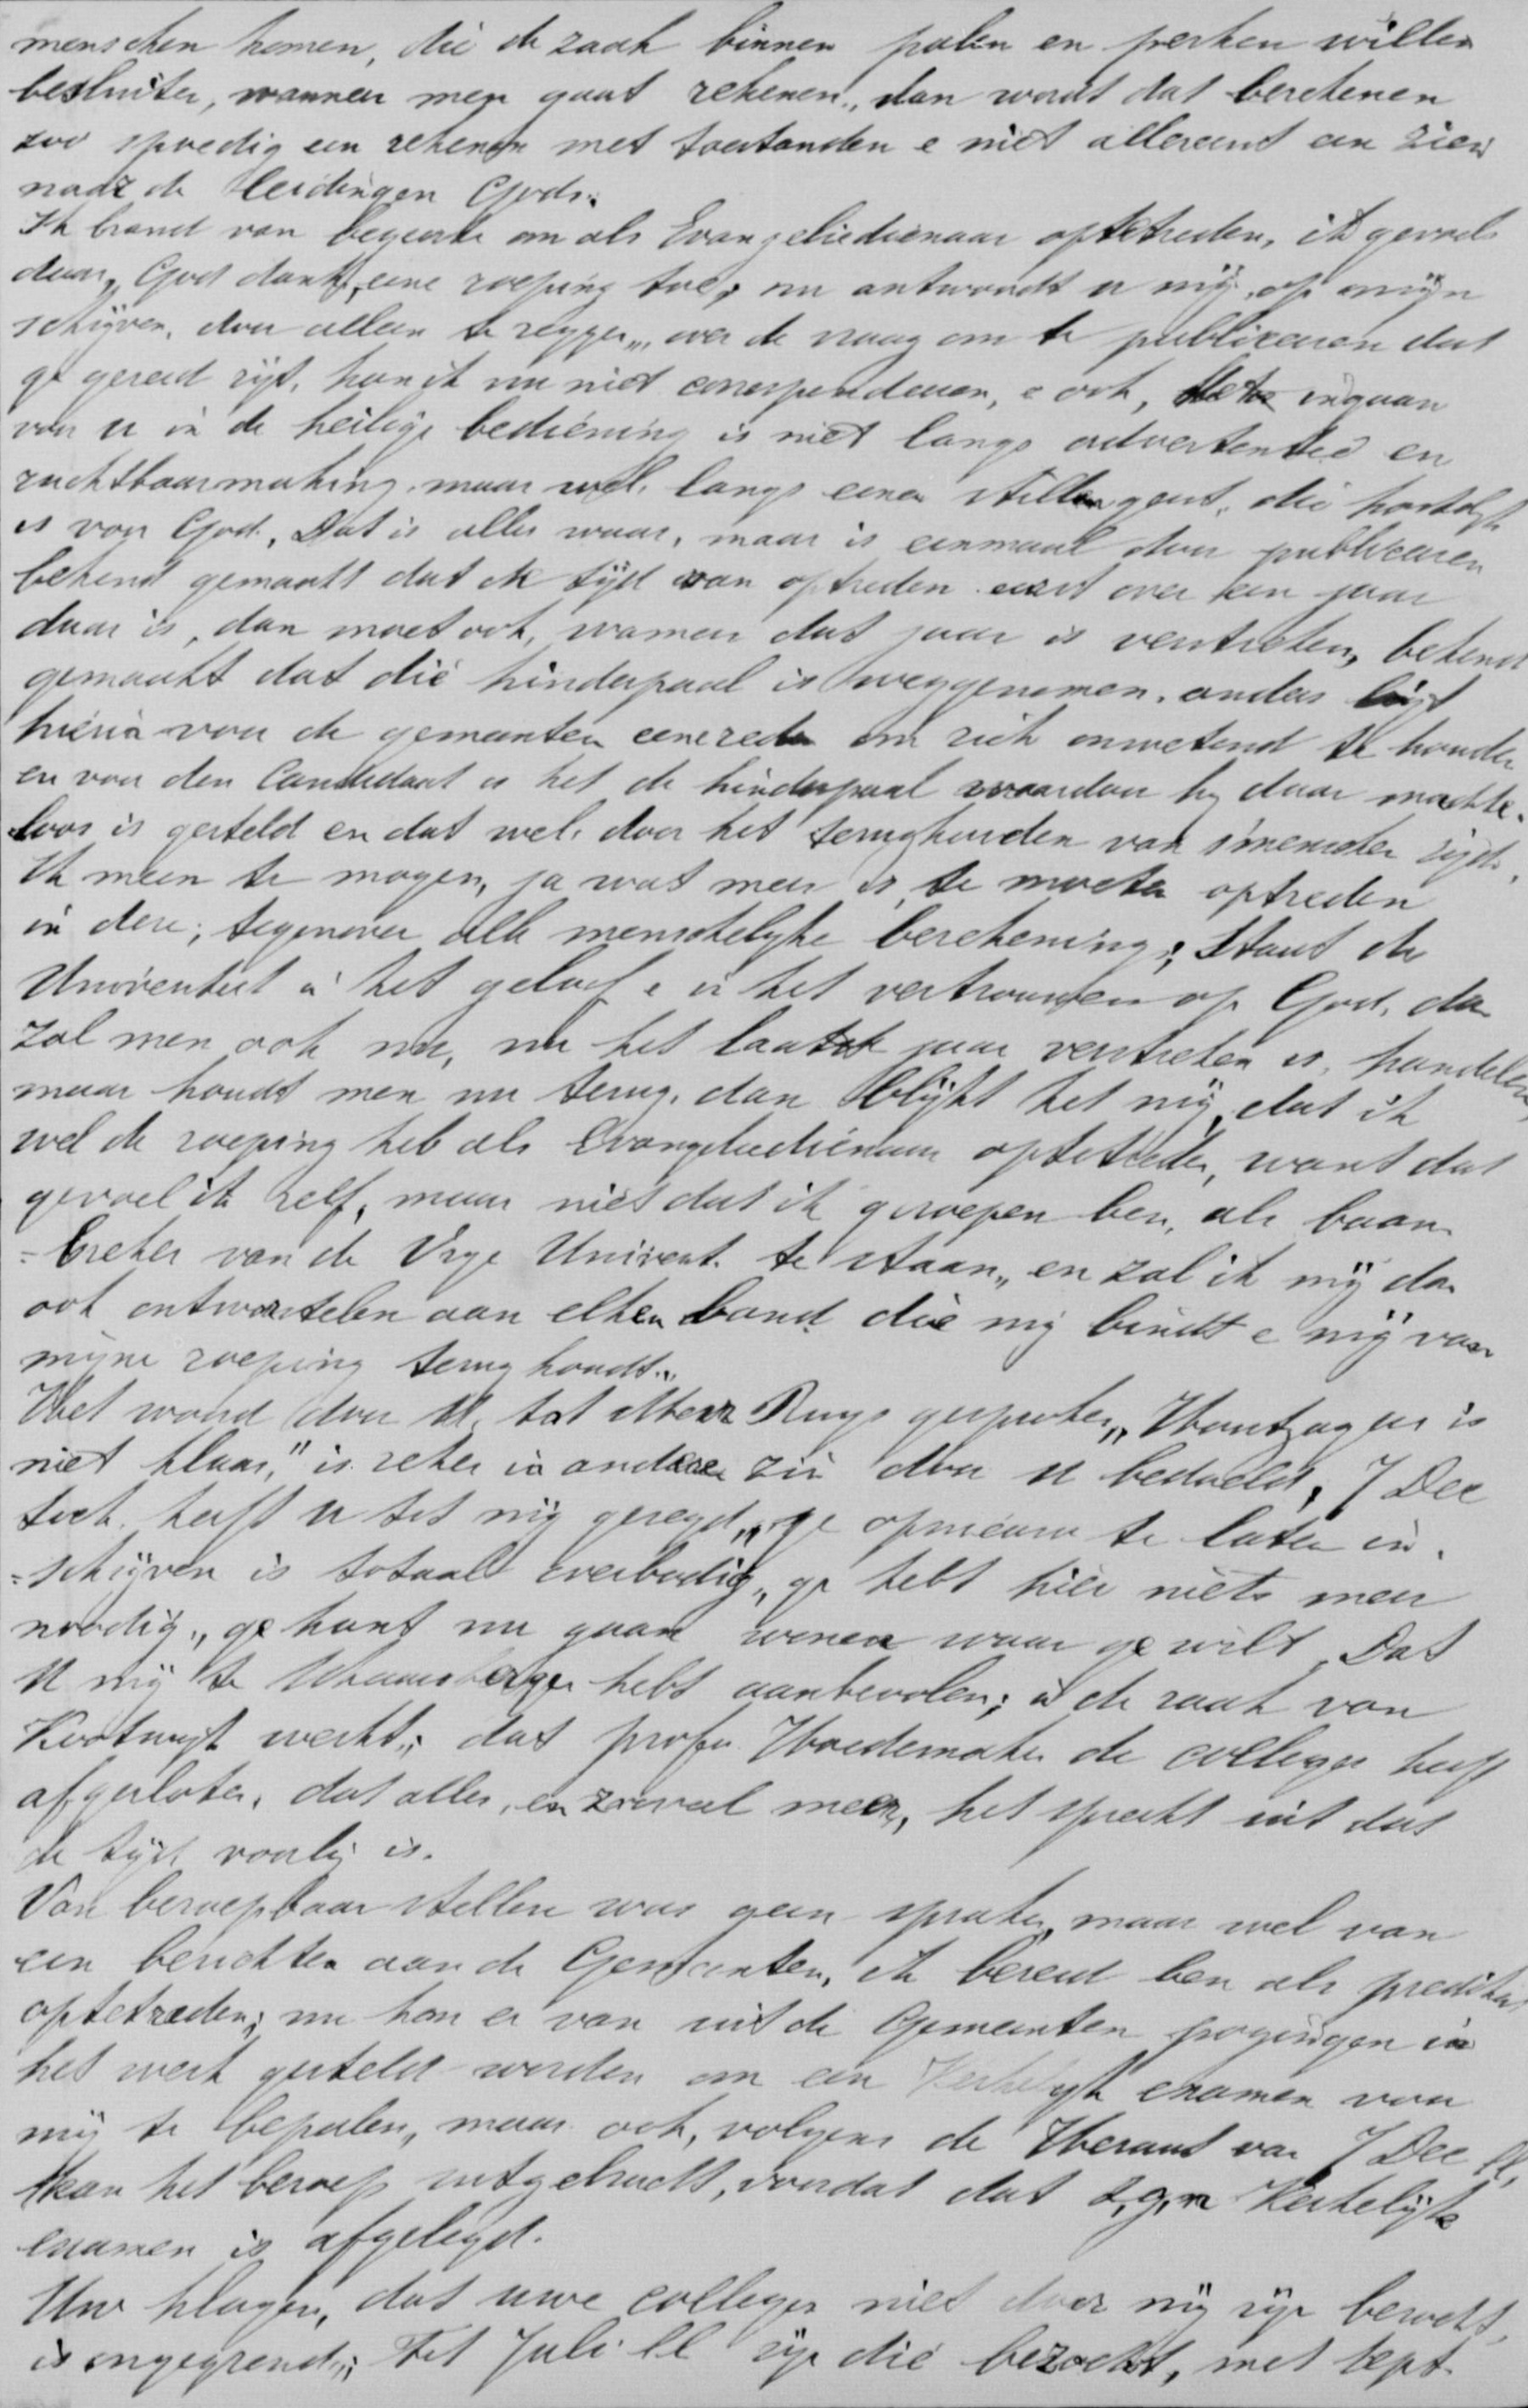 menschen komen, die de zaak binnen palen en perken willen
besluiten, wanneer men gaat rekenen, dan wordt dat berekenen
zoo spoedig een rekenen met toestanden e niet allereerst een zien
naar de leidingen Gods.
Ik brand van begeerte om als Evangeliedienaar optetreden, ik gevoel
daar, God dank, eene roeping toe, nu antwoordt u mij, op mijn
schrijven, door alleen te zeggen, over de vraag om te publiceeren dat
ge gereed zijt, kan ik nu niet correspondeeren, e ook, ingaan
van u in de heilige bediening is niet langs advertentie en
ruchtbaarmaking maar wel langs eenen stillen geest, die kostelijk
is voor God. Dat is alles waar, maar is eenmaal door publiceeren
bekend gemaakt dat de tijd van optreden eerst over een jaar
daar is, dan moet ook, wanneer dat jaar is verstreken, bekend
gemaakt dat die hinderpaal is weggenomen, anders ligt
hierin voor de gemeenten eene reden om zich onwetend te houden
en voor den Candidaat is het de hinderpaal waardoor hy daar machte-
loos is gesteld en dat wel door het terughouden van s'menschen zijde,
Ik meen te mogen, ja wat meer is, te moeten optreden
in deze; tegenover alle menschelyke berekening; Staat de
Universiteit in het geloof e in het vertrouwen op God, dan
zal men ook nu, nu het laatste jaar verstreken is, handelen
maar houdt men nu terug, dan blijkt het mij, dat ik
wel de roeping heb als Evangeliedienaar optetreden, want dat
gevoel ik zelf, maar niet dat ik geroepen ben, als baan
=breker van de Vrye Universt. te staan, en zal ik mij dan
ook ontworstelen aan elken band die mij bindt e mij van
mijne roeping terug houdt.
Het woord door U. tot Rugs gesproken, Houtzagers is
niet klaar," is zeker in anderen zin door u bedoeld, 7 Dec
toch heeft u tot mij gezegd, "ge opnieuw te laten in-
=schrijven is totaal overbodig, ge hebt hier niets meer
noodig, ge kunt nu gaan wonen waar ge wilt, Dat
U mij te hebt aanbevolen; in de zaak van
Kootwijk werkt; dat profr. Hoedemaker de colleges heeft
afgesloten, dat alles, en zooveel meer, het spreekt uit dat
de tijd voorbij is.
Van beroepbaar stellen was geen sprake, maar wel van
een berichten aan de Gemeenten, ik bereid ben als prediker
optetreden; nu kan er van uit de Gemeenten pogingen in
het werk gesteld worden om een Kerkelijk examen voor
mij te bepalen, maar ook, volgens de Heraut van 7 Dec ll,
kan het beroep uitgebracht, voordat dat z.g.n Kerkelijk
examen is afgelegd.
Uw klagen, dat uwe colleges niet door mij zijn bezocht,
is ongegrond; tot Juli ll zijn die bezocht, met sept.